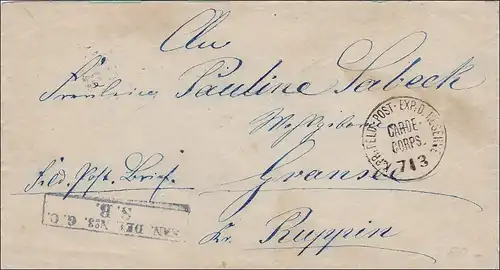 An
Fräulein Pauline Sabeck
Wohlgeboren
Gransee
Feld. Post. Brief.
Kr. Ruppin
K.PR.FELD-POST-EXP.D.
GARDE-
CORPS.
7 13
SAN. DET. No 3. G. C.
S. B.